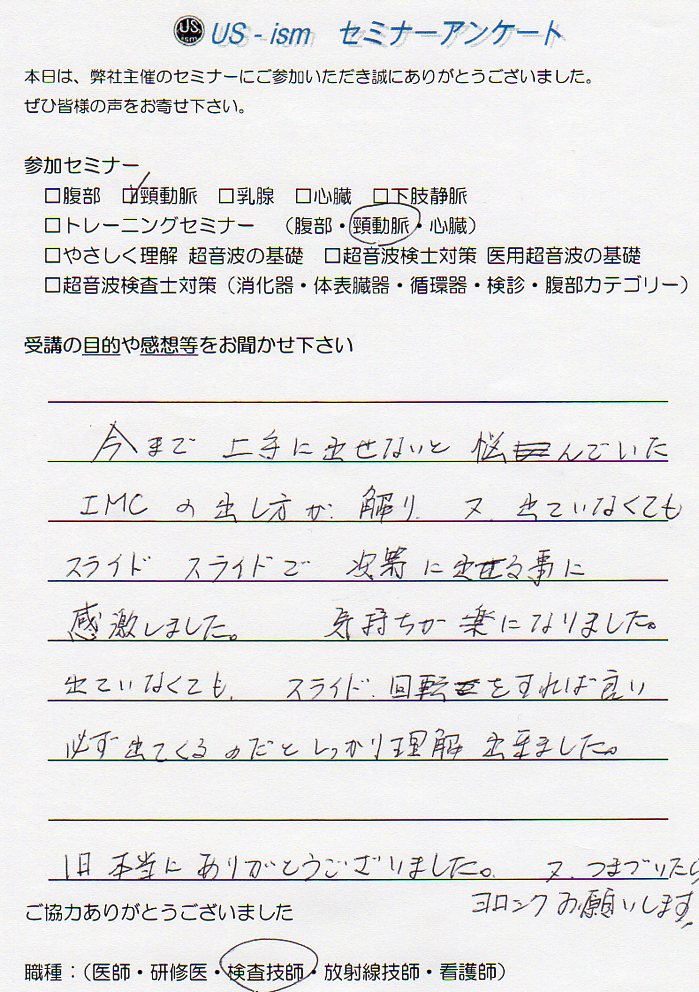 US ism US-ism セミナーアンケート
本日は、弊社主催のセミナーにご参加いただき誠にありがとうございました。
ぜひ皆様の声をお寄せ下さい。
参加セミナー
□腹部 ☑頸動脈 □乳腺 □心臓 □下肢静脈
□トレーニングセミナー （腹部・頸動脈・心臓）
□やさしく理解 超音波の基礎 □超音波検士対策 医用超音波の基礎
□超音波検査士対策（消化器・体表臓器・循環器・検診・腹部カテゴリー）
受講の目的や感想等をお聞かせ下さい
今まで 上手に出せないと 悩んでいた
IMCの出し方が 解り、又、出ていなくても
スライド スライドで 次第に出せる事に
感激しました。 気持ちが楽になりました。
出ていなくても、スライド、回転をすれば良い
必ず出てくるのだとしっかり理解出来ました。
1日本当にありがとうございました。 又、つまづいたら
ヨロシクお願いします!
ご協力ありがとうございました
職種：（医師・研修医・検査技師・放射線技師・看護師）